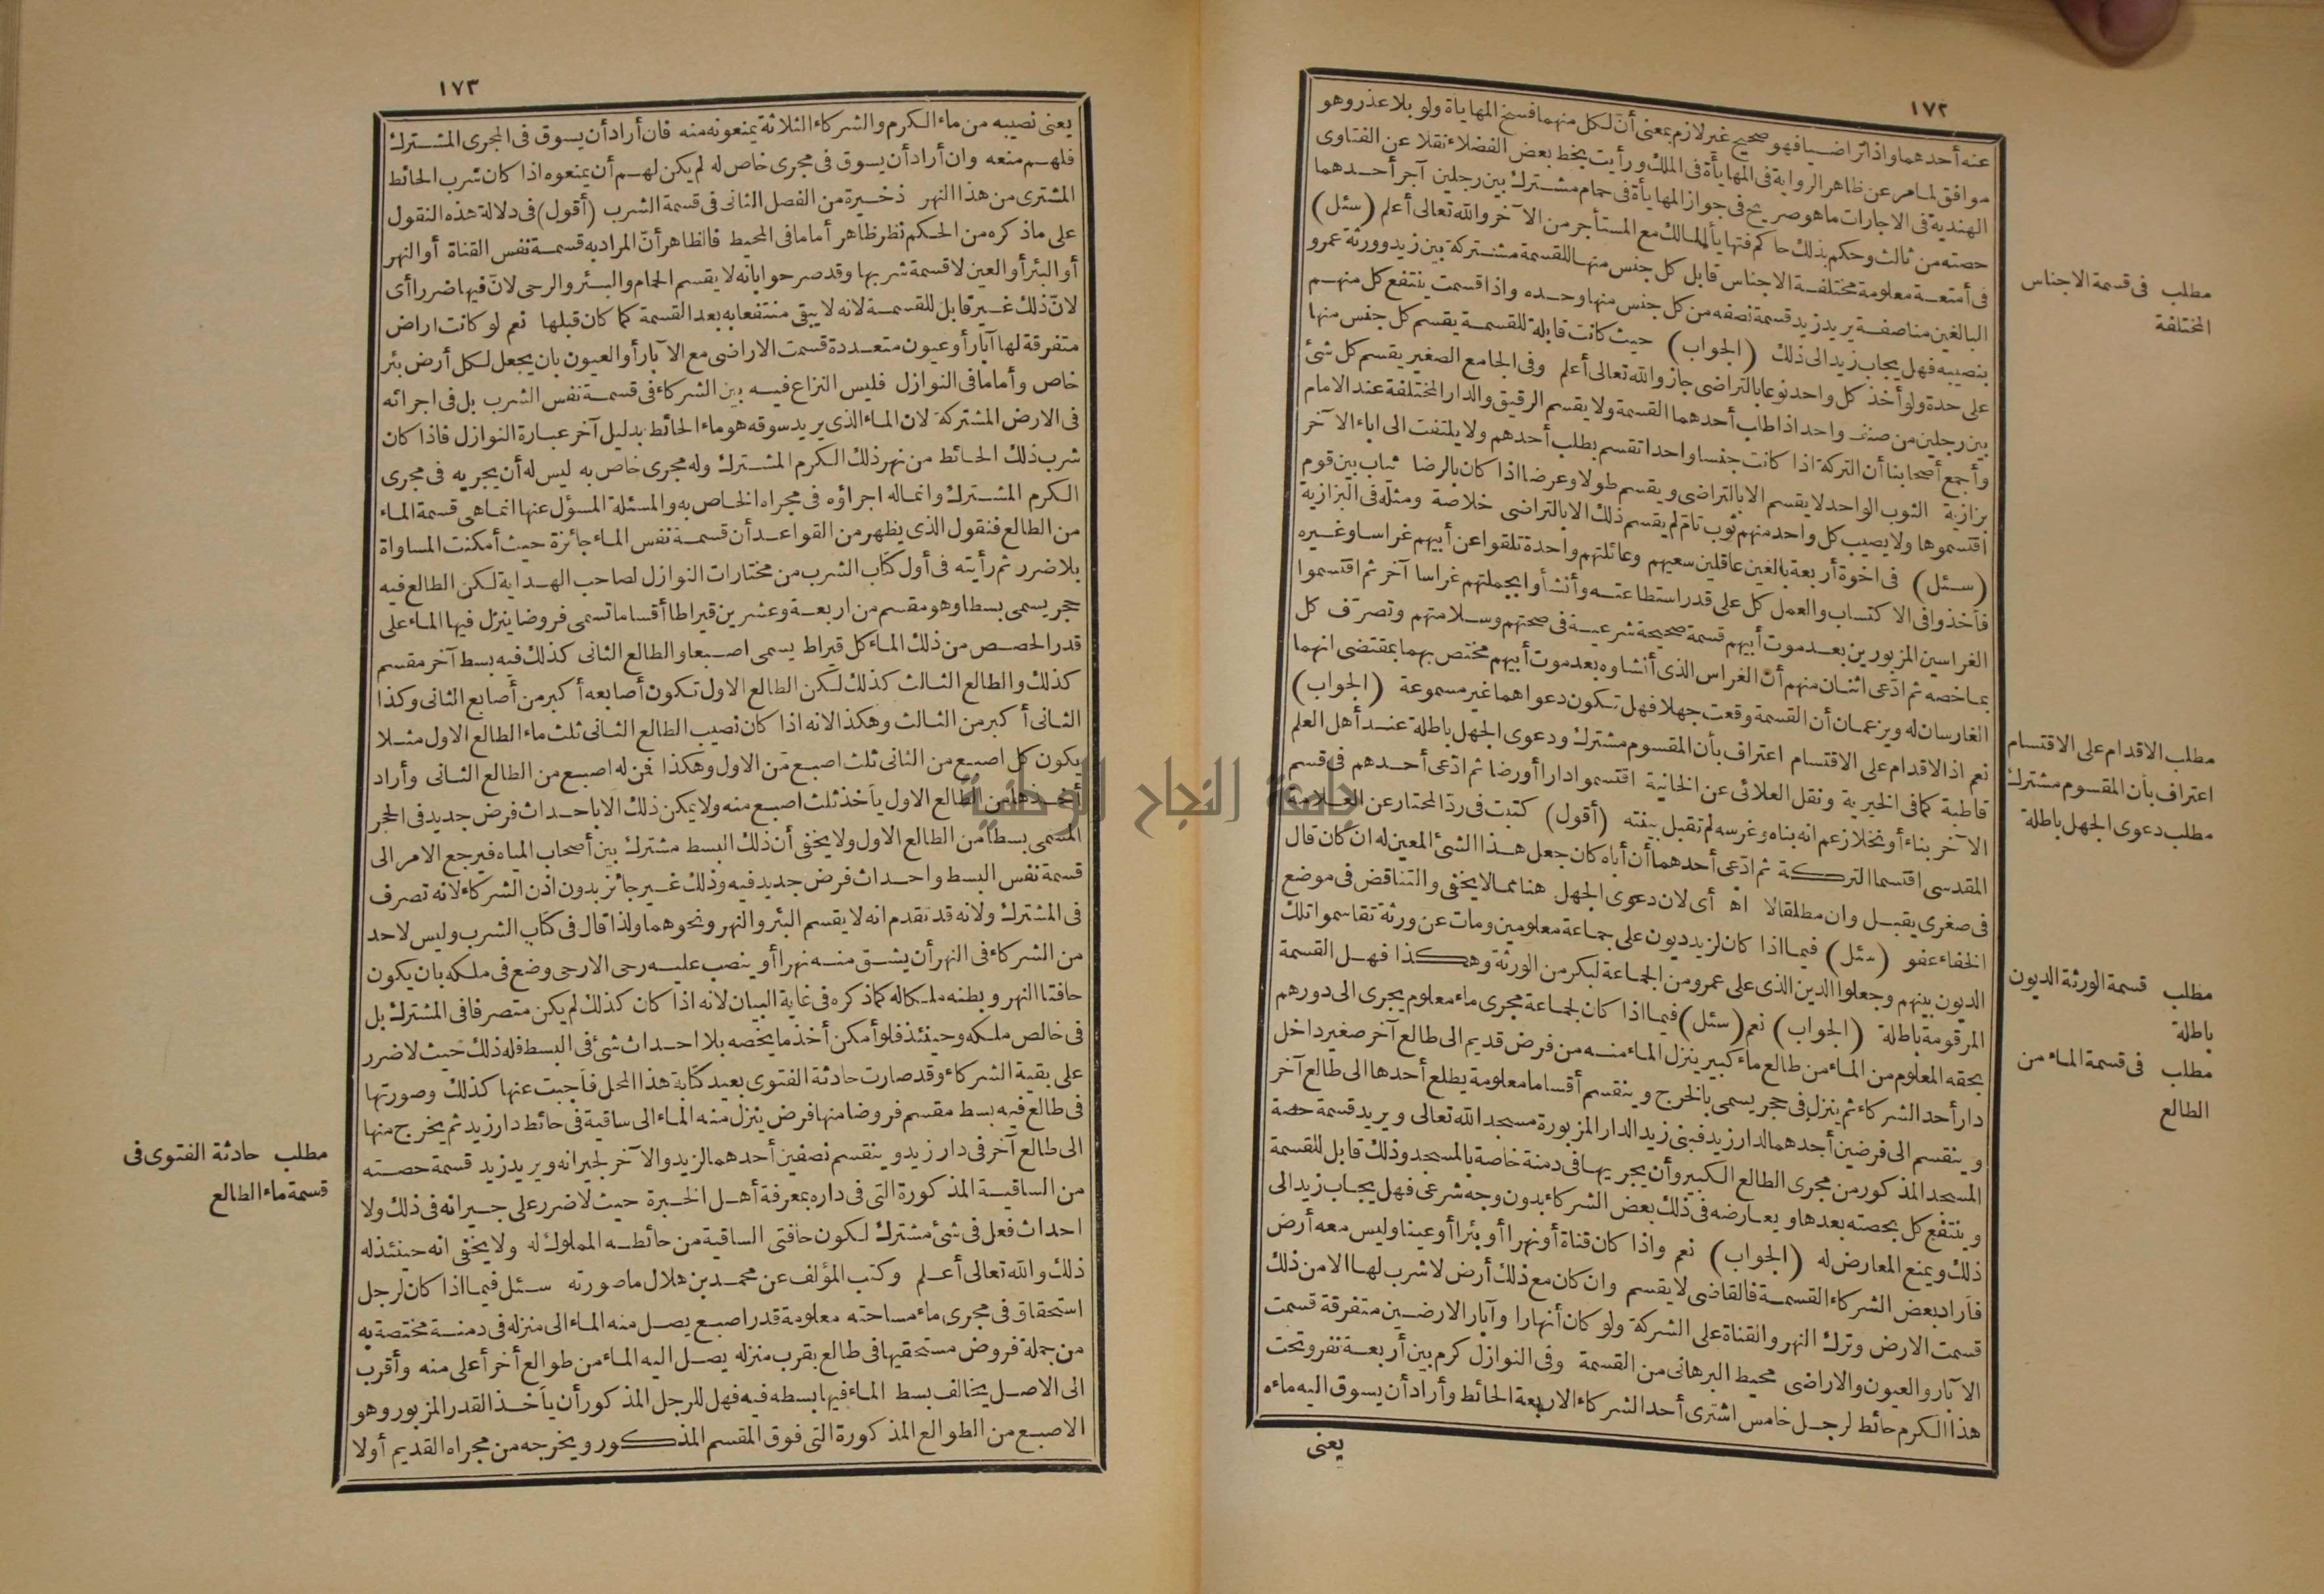 ١٧٢
عنه أحدهما واذا تراضيا فهو صحيح غير لازم بمعنى أن لكل منهما فسخ المهايأة ولو بلا عذر وهو
موافق لما مر عن ظاهر الرواية فى المهايأة فى الملك ورأيت بخط بعض الفضلاء نقلا عن الفتاوى
الهندية فى الاجارات ما هو صريح فى جواز المهايأة فى حمام مشترك بين رجلين آجر أحدهما
حصته من ثالث وحكم بذلك حاكم فتهايأ المالك مع المستأجر من الآخر والله تعالى أعلم (سئل)
فى أمتعة معلومة مختلفة الاجناس قابل كل جنس منها للقسمة مشتركة بين زيد وورثة عمرو
البالغين مناصفة يريد زيد قسمة نصفه من كل جنس منها وحده واذا قسمت ينتفع كل منهم
بنصيبه فهل يجاب زيد الى ذلك (الجواب) حيث كانت قابلة للقسمة يقسم كل جنس منها
على حدة ولو أخذ كل واحد نوعا بالتراضى جاز والله تعالى أعلم وفى الجامع الصغير يقسم كل شئ
بين رجلين من صنف واحد اذا طلب أحدهما القسمة ولا يقسم الرقيق والدار المختلفة عند الامام
وأجمع أصحابنا أن التركة اذا كانت جنسا واحدا تقسم بطلب أحدهم ولا يلتفت الى اباء الآخر
بزازية الثوب الواحد لا يقسم الا بالتراضى ويقسم طولا وعرضا اذا كان بالرضا ثياب بين قوم
اقتسموها ولا يصيب كل واحد منهم ثوب تام لم يقسم ذلك الا بالتراضى خلاصة ومثله فى البزازية
(سئل) فى اخوة أربعة بالغين عاقلين سعيهم وعائلتهم واحدة تلقوا عن أبيهم غراسا وغيره
فأخذوا فى الاكتساب والعمل كل على قدر استطاعته وأنشأوا بجملتهم غراسا آخر ثم اقتسموا
الغراسين المزبورين بعد موت أبيهم قسمة صحيحة شرعية فى صحتهم وسلامتهم وتصرّف كل
بما خصه ثم ادّعى اثنان منهم أن الغراس الذى أنشاوه بعد موت أبيهم مختص بهما بمقتضى انهما
الغارسان له ويزعمان أن القسمة وقعت جهلا فهل تكون دعواهما غير مسموعة (الجواب)
نعم اذ الاقدام على الاقتسام اعتراف بأن المقسوم مشترك ودعوى الجهل باطلة عند أهل العلم
قاطبة كما فى الخيرية ونقل العلائى عن الخانية اقتسموا دارا أو رضا ثم ادّعى أحدهم فى قسم
الآخر بناء أو نخلا زعم انه بناه وغرسه لم تقبل بينته (أقول) كتبت فى ردّ المحتار عن العلامة
المقدسى اقتسما التركة ثم ادّعى أحدهما أن أباه كان جعل هذا الشئ المعين له ان كان قال
فى صغرى يقبل وان مطلقا لا اه أى لان دعوى الجهل هنا مما لا يخفى والتناقض فى موضع
الخفاء عفو (سئل) فيما اذا كان لزيد ديون على جماعة معلومين ومات عن ورثة تقاسموا تلك
الديون بينهم وجعلوا الدين الذى على عمرو من الجماعة لبكر من الورثة وهكذا فهل القسمة
المرقومة باطلة (الجواب) نعم (سئل) فيما اذا كان لجماعة مجرى ماء معلوم يجرى الى دورهم
بحقه المعلوم من الماء من طالع ماء كبير ينزل الماء منه من فرض قديم الى طالع آخر صغير داخل
دار أحد الشركاء ثم ينزل فى حجر يسمى بالخرج وينقسم أقساما معلومة يطلع أحدها الى طالع آخر
وينقسم الى فرضين أحدهما لدار زيد فبنى زيد الدار المزبورة مسجد الله تعالى ويريد قسمة حصة
المسجد المذكور من مجرى الطالع الكبير وأن يجريها فى دمنة خاصة بالمسجد وذلك قابل للقسمة
وينتفع كل بحصته بعدها ويعارضه فى ذلك بعض الشركاء بدون وجه شرعى فهل يجاب زيد الى
ذلك ويمنع المعارض له (الجواب) نعم واذا كان قناة أو نهرا أو بئرا أو عينا وليس معه أرض
فأراد بعض الشركاء القسمة فالقاضى لا يقسم وان كان مع ذلك أرض لا شرب لها الا من ذلك
قسمت الارض وترك النهر والقناة على الشركة ولو كان أنهارا وآبار الارضين متفرقة قسمت
الآبار والعيون والاراضى محيط البرهانى من القسمة وفى النوازل كرم بين أربعة نفر وتحت
هذا الكرم حائط لرجل خامس اشترى أحد الشركاء الاربعة الحائط وأراد أن يسوق اليه ماءه
يعنى
مطلب فى قسمة الاجناس
المختلفة
مطلب الاقدام على الاقتسام
اعتراف بأن المقسوم مشترك
مطلب دعوى الجهل باطلة
مطلب قسمة الورثة الديون
باطلة
مطلب فى قسمة الماء من
الطالع
١٧٣
يعنى نصيبه من ماء الكرم والشركاء الثلاثة يمنعونه منه فان أراد أن يسوق فى المجرى المشترك
فلهم منعه وان أراد أن يسوق فى مجرى خاص له لم يكن لهم أن يمنعوه اذا كان شرب الحائط
المشترى من هذا النهر ذخيرة من الفصل الثانى فى قسمة الشرب (أقول) فى دلالة هذه النقول
على ما ذكره من الحكم نظر ظاهر أما ما فى المحيط فالظاهر أن المراد به قسمة نفس القناة أو النهر
أو البئر أو العين لا قسمة شربها وقد صرحوا بانه لا يقسم الحمام والبئر والرحى لانّ فيها ضررا أى
لانّ ذلك غير قابل للقسمة لانه لا يبقى منتفعا به بعد القسمة كما كان قبلها نعم لو كانت اراض
متفرقة لها آبار أو عيون متعددة قسمت الاراضى مع الآبار أو العيون بان يجعل لكل أرض بئر
خاص وأما ما فى النوازل فليس النزاع فيه بين الشركاء فى قسمة نفس الشرب بل فى اجرائه
فى الارض المشتركة لان الماء الذى يريد سوقه هو ماء الحائط بدليل آخر عبارة النوازل فاذا كان
شرب ذلك الحائط من نهر ذلك الكرم المشترك وله مجرى خاص به ليس له أن يجريه فى مجرى
الكرم المشترك وانما له اجراؤه فى مجراه الخاص به والمسئلة المسؤل عنها انما هى قسمة الماء
من الطالع فنقول الذى يظهر من القواعد أن قسمة نفس الماء جائزة حيث أمكنت المساواة
بلا ضرر ثم رأيته فى أول كتاب الشرب من مختارات النوازل لصاحب الهداية لكن الطالع فيه
حجر يسمى بسطا وهو مقسم من اربعة وعشرين قيراطا أقساما تسمى فروضا ينزل فيها الماء على
قدر الحصص من ذلك الماء كل قيراط يسمى اصبعا والطالع الثانى كذلك فيه بسط آخر مقسم
كذلك والطالع الثالث كذلك لكن الطالع الاول تكون أصابعه أكبر من أصابع الثانى وكذا
الثانى أكبر من الثالث وهكذا لانه اذا كان نصيب الطالع الثانى ثلث ماء الطالع الاول مثلا
يكون كل اصبع من الثانى ثلث اصبع من الاول وهكذا فمن له اصبع من الطالع الثانى وأراد
أخذها من الطالع الاول يأخذ ثلث اصبع منه ولا يمكن ذلك الا باحداث فرض جديد فى الحجر
المسمى بسطا من الطالع الاول ولا يخفى أن ذلك البسط مشترك بين أصحاب المياه فيرجع الامر الى
قسمة نفس البسط واحداث فرض جديد فيه وذلك غير جائز بدون اذن الشركاء لانه تصرف
فى المشترك ولانه قد تقدم انه لا يقسم البئر والنهر ونحوهما ولذا قال فى كتاب الشرب وليس لاحد
من الشركاء فى النهر أن يشق منه نهرا أو ينصب عليه رحى الا رحى وضع فى ملكه بان يكون
حافتا النهر وبطنه ملكا له كما ذكره فى غاية البيان لانه اذا كان كذلك لم يكن متصرفا فى المشترك بل
فى خالص ملكه وحينئذ فلو أمكن أخذ ما يخصه بلا احداث شئ فى البسط فله ذلك حيث لا ضرر
على بقية الشركاء وقد صارت حادثة الفتوى بعيد كتابة هذا المحل فأجبت عنها كذلك وصورتها
فى طالع فيه بسط مقسم فروضا منها فرض ينزل منه الماء الى ساقية فى حائط دار زيد ثم يخرج منها
الى طالع آخر فى دار زيد وينقسم نصفين أحدهما لزيد والآخر لجيرانه ويريد زيد قسمة حصته
من الساقية المذكورة التى فى داره بمعرفة أهل الخبرة حيث لا ضرر على جيرانه فى ذلك ولا
احداث فعل فى شئ مشترك لكون حافتى الساقية من حائطه المملوك له ولا يخفى انه حينئذ له
ذلك والله تعالى أعلم وكتب المؤلف عن محمد بن هلال ما صورته سئل فيما اذا كان لرجل
استحقاق فى مجرى ماء مساحته معلومة قدر اصبع يصل منه الماء الى منزله فى دمنة مختصة به
من جملة فروض مستحقيها فى طالع بقرب منزله يصل اليه الماء من طوالع أخر أعلى منه وأقرب
الى الاصل يخالف بسط الماء فيها بسطه فيه فهل للرجل المذكور أن يأخذ القدر المزبور وهو
الاصبع من الطوالع المذكورة التى فوق المقسم المذكور ويخرجه من مجراه القديم أولا
مطلب حادثة الفتوى فى
قسمة ماء الطالع
جامعة النجاح الوطنية